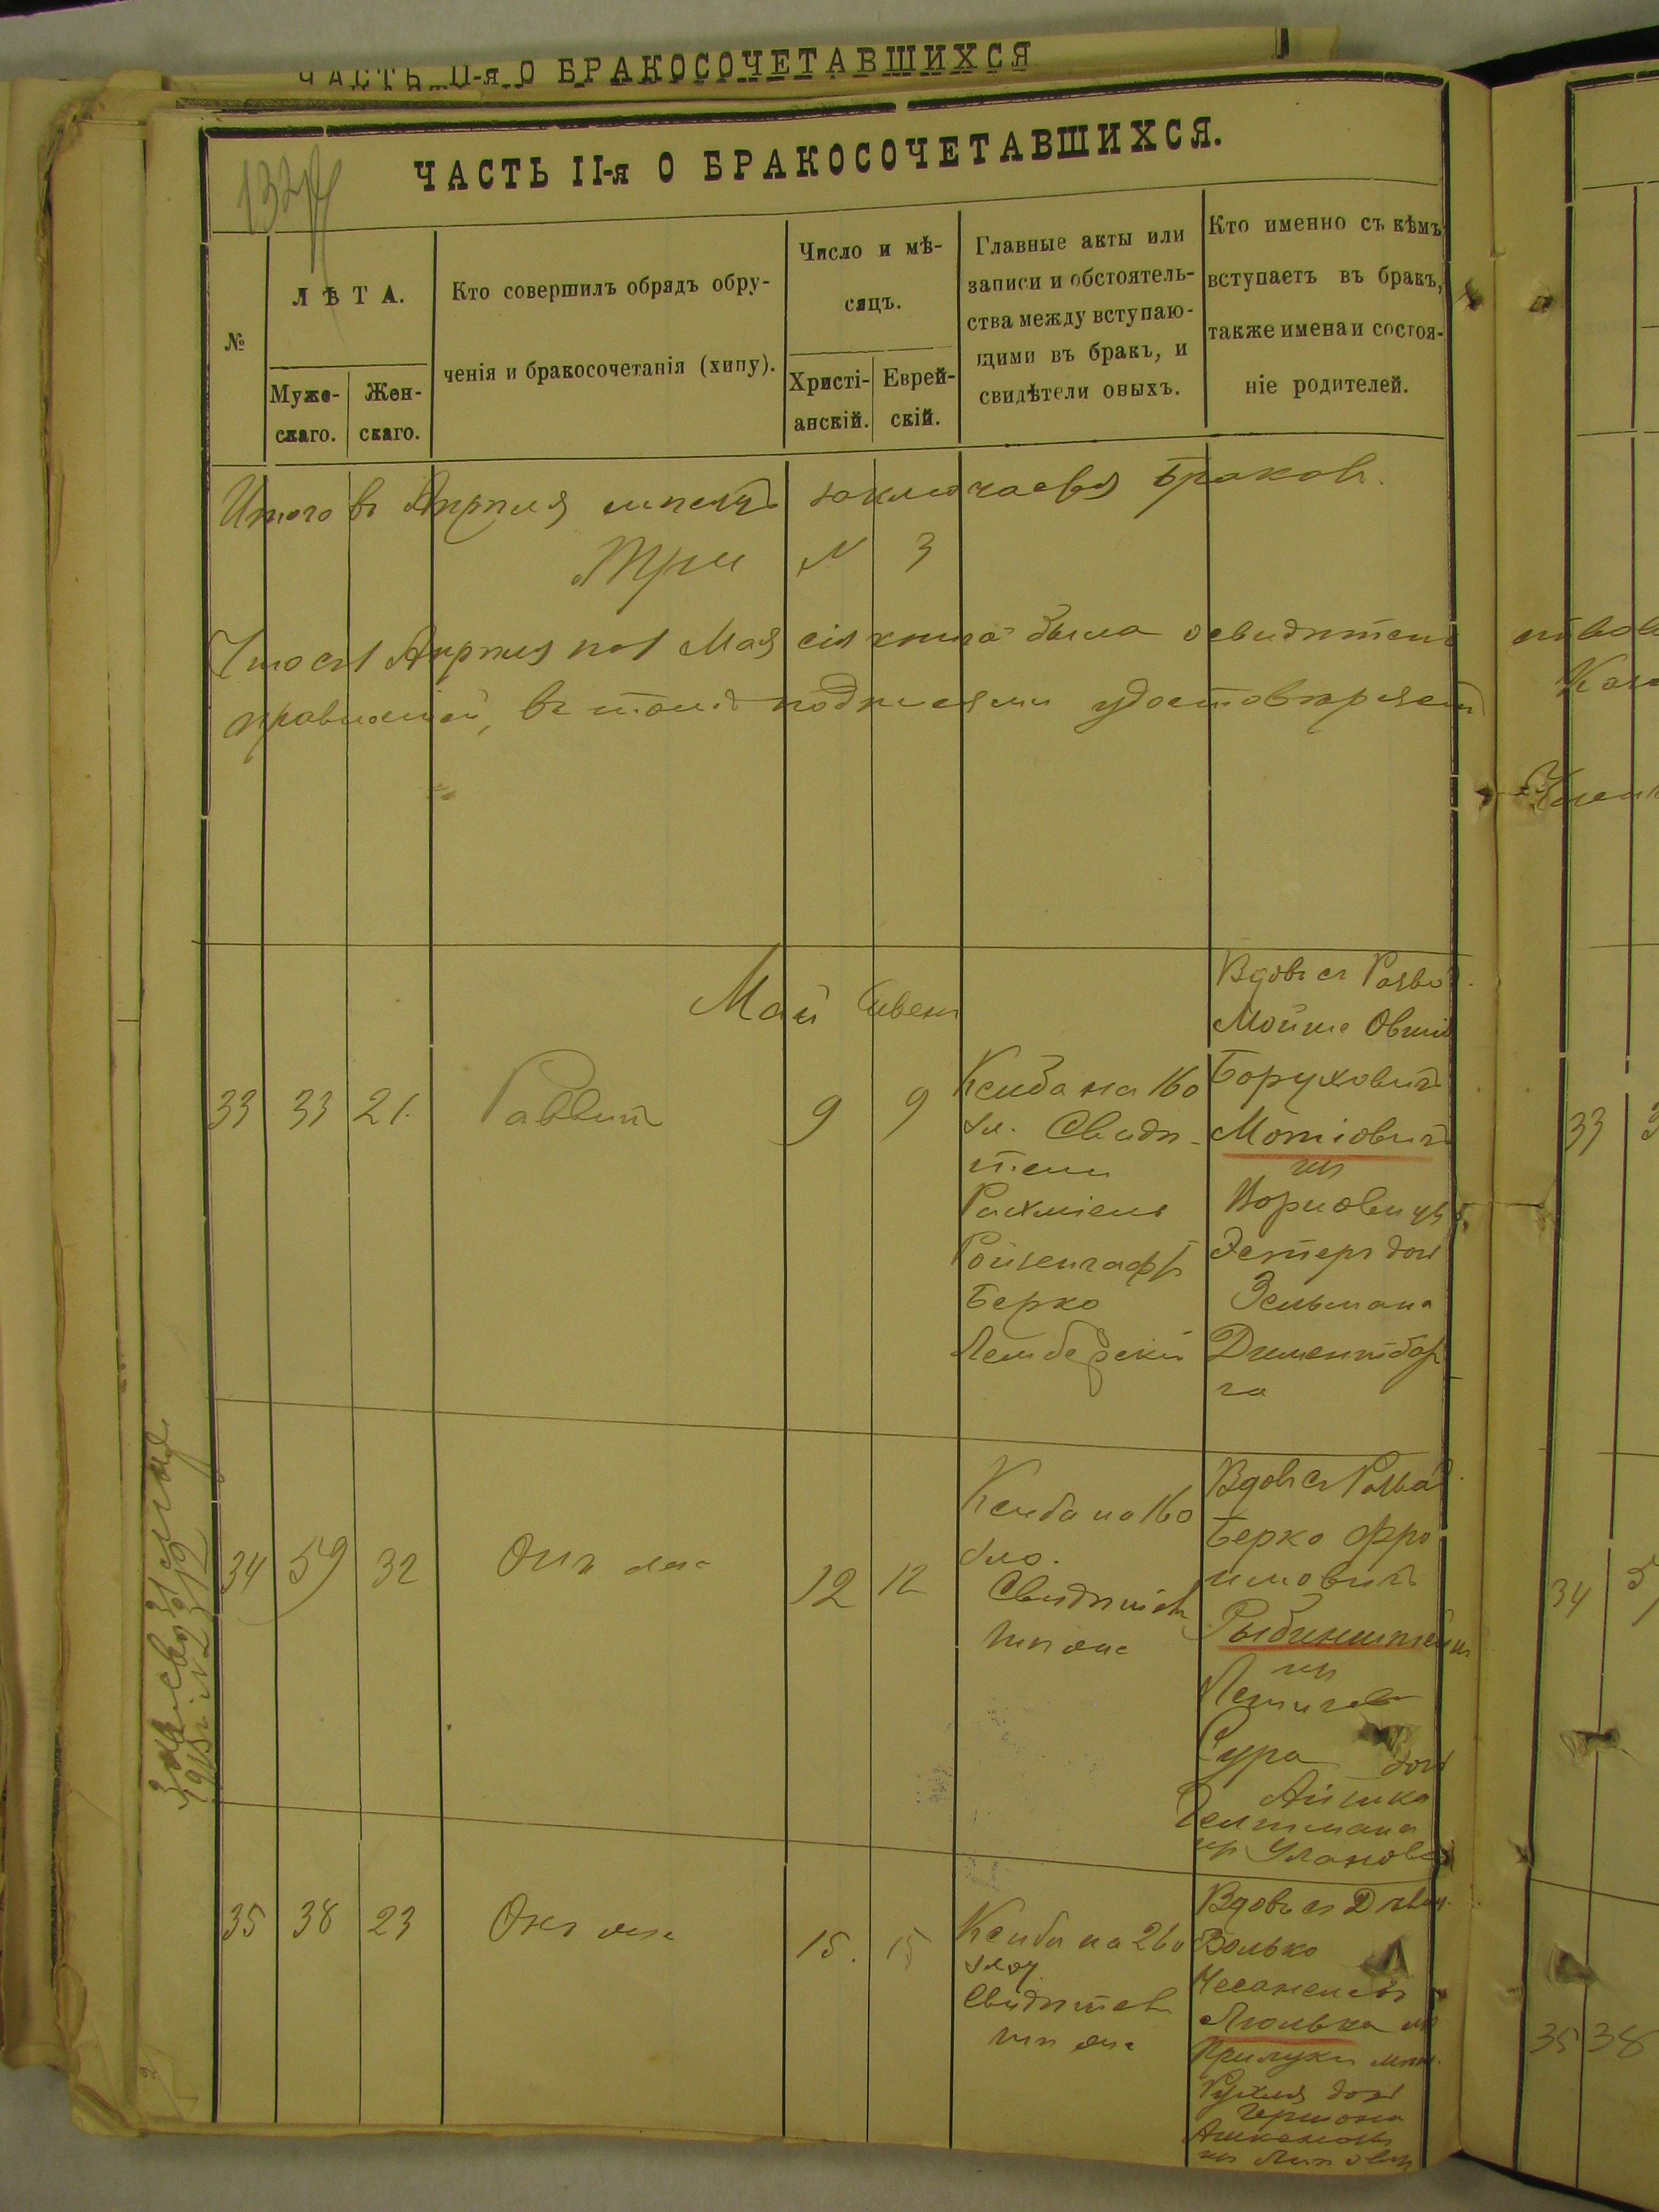 ЧАСТЬ II-я О БРАКОСОЧЕТАВШИХСЯ
ЧАСТЬ II-я О БРАКОСОЧЕТАВШИХСЯ.
132
№
ЛѢТА.
Муже-
скаго.
Жен-
скаго.
Кто совершилъ обрядъ обру-
ченія и бракосочетанія (хипу).
Число и мѣ-
сяцъ.
Христі-
анскій.
Еврей-
скій.
Главные акты или
записи и обстоятель-
ства между вступаю-
щими въ бракъ, и
свидѣтели оныхъ.
Кто именно съ кѣмъ
вступаетъ въ бракъ,
также имена и состоя-
ніе родителей.
Итого въ Апрѣлѣ мѣсяцѣ заключается браковъ
Три № 3
Что съ 1 Апрѣля по 1 Мая сія книга была освидѣтель
правильной, въ томъ подписями удостовѣряемъ
Май Сивенъ
33 33 21. Раввинъ 9 9
Ксиба на 160
зл. Свидѣ-
тели
Рахміель
Ройзенгафтъ
Берко
Лембергскій
Вдовъ съ Развод.
Мойше Овшій
Боруховичъ
Мотіовичъ
изъ
Ворновицъ
Эстеръ дочь
Зельмана
Диментбар
га
34 59 32 Онъ же 12 12
Ксиба на 160
зло.
Свидѣтели
тѣ же
Вдовъ съ Развод.
Берко Фро
имовичъ
Рыбинштейнъ
изъ
Сура дочь
Айзика
Гелтмана
изъ Уланова
35 38 23 Онъ же 15. 15
Ксиба на 260
злот.
Свидѣтели
тѣ же
Вдовъ съ Дѣвиц.
Волько
Люлька изъ
Прилуки
Рухля дочь
Гершона
изъ
33
34
35 38